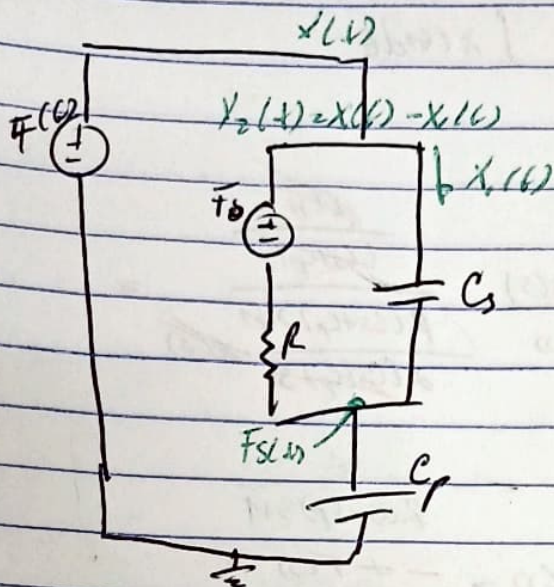 x(t)
F(t)
X₂(t) = X(t) - X₁(t)
X₁(t)
F₀
Cₛ
R
Fs(t)
Cₚ